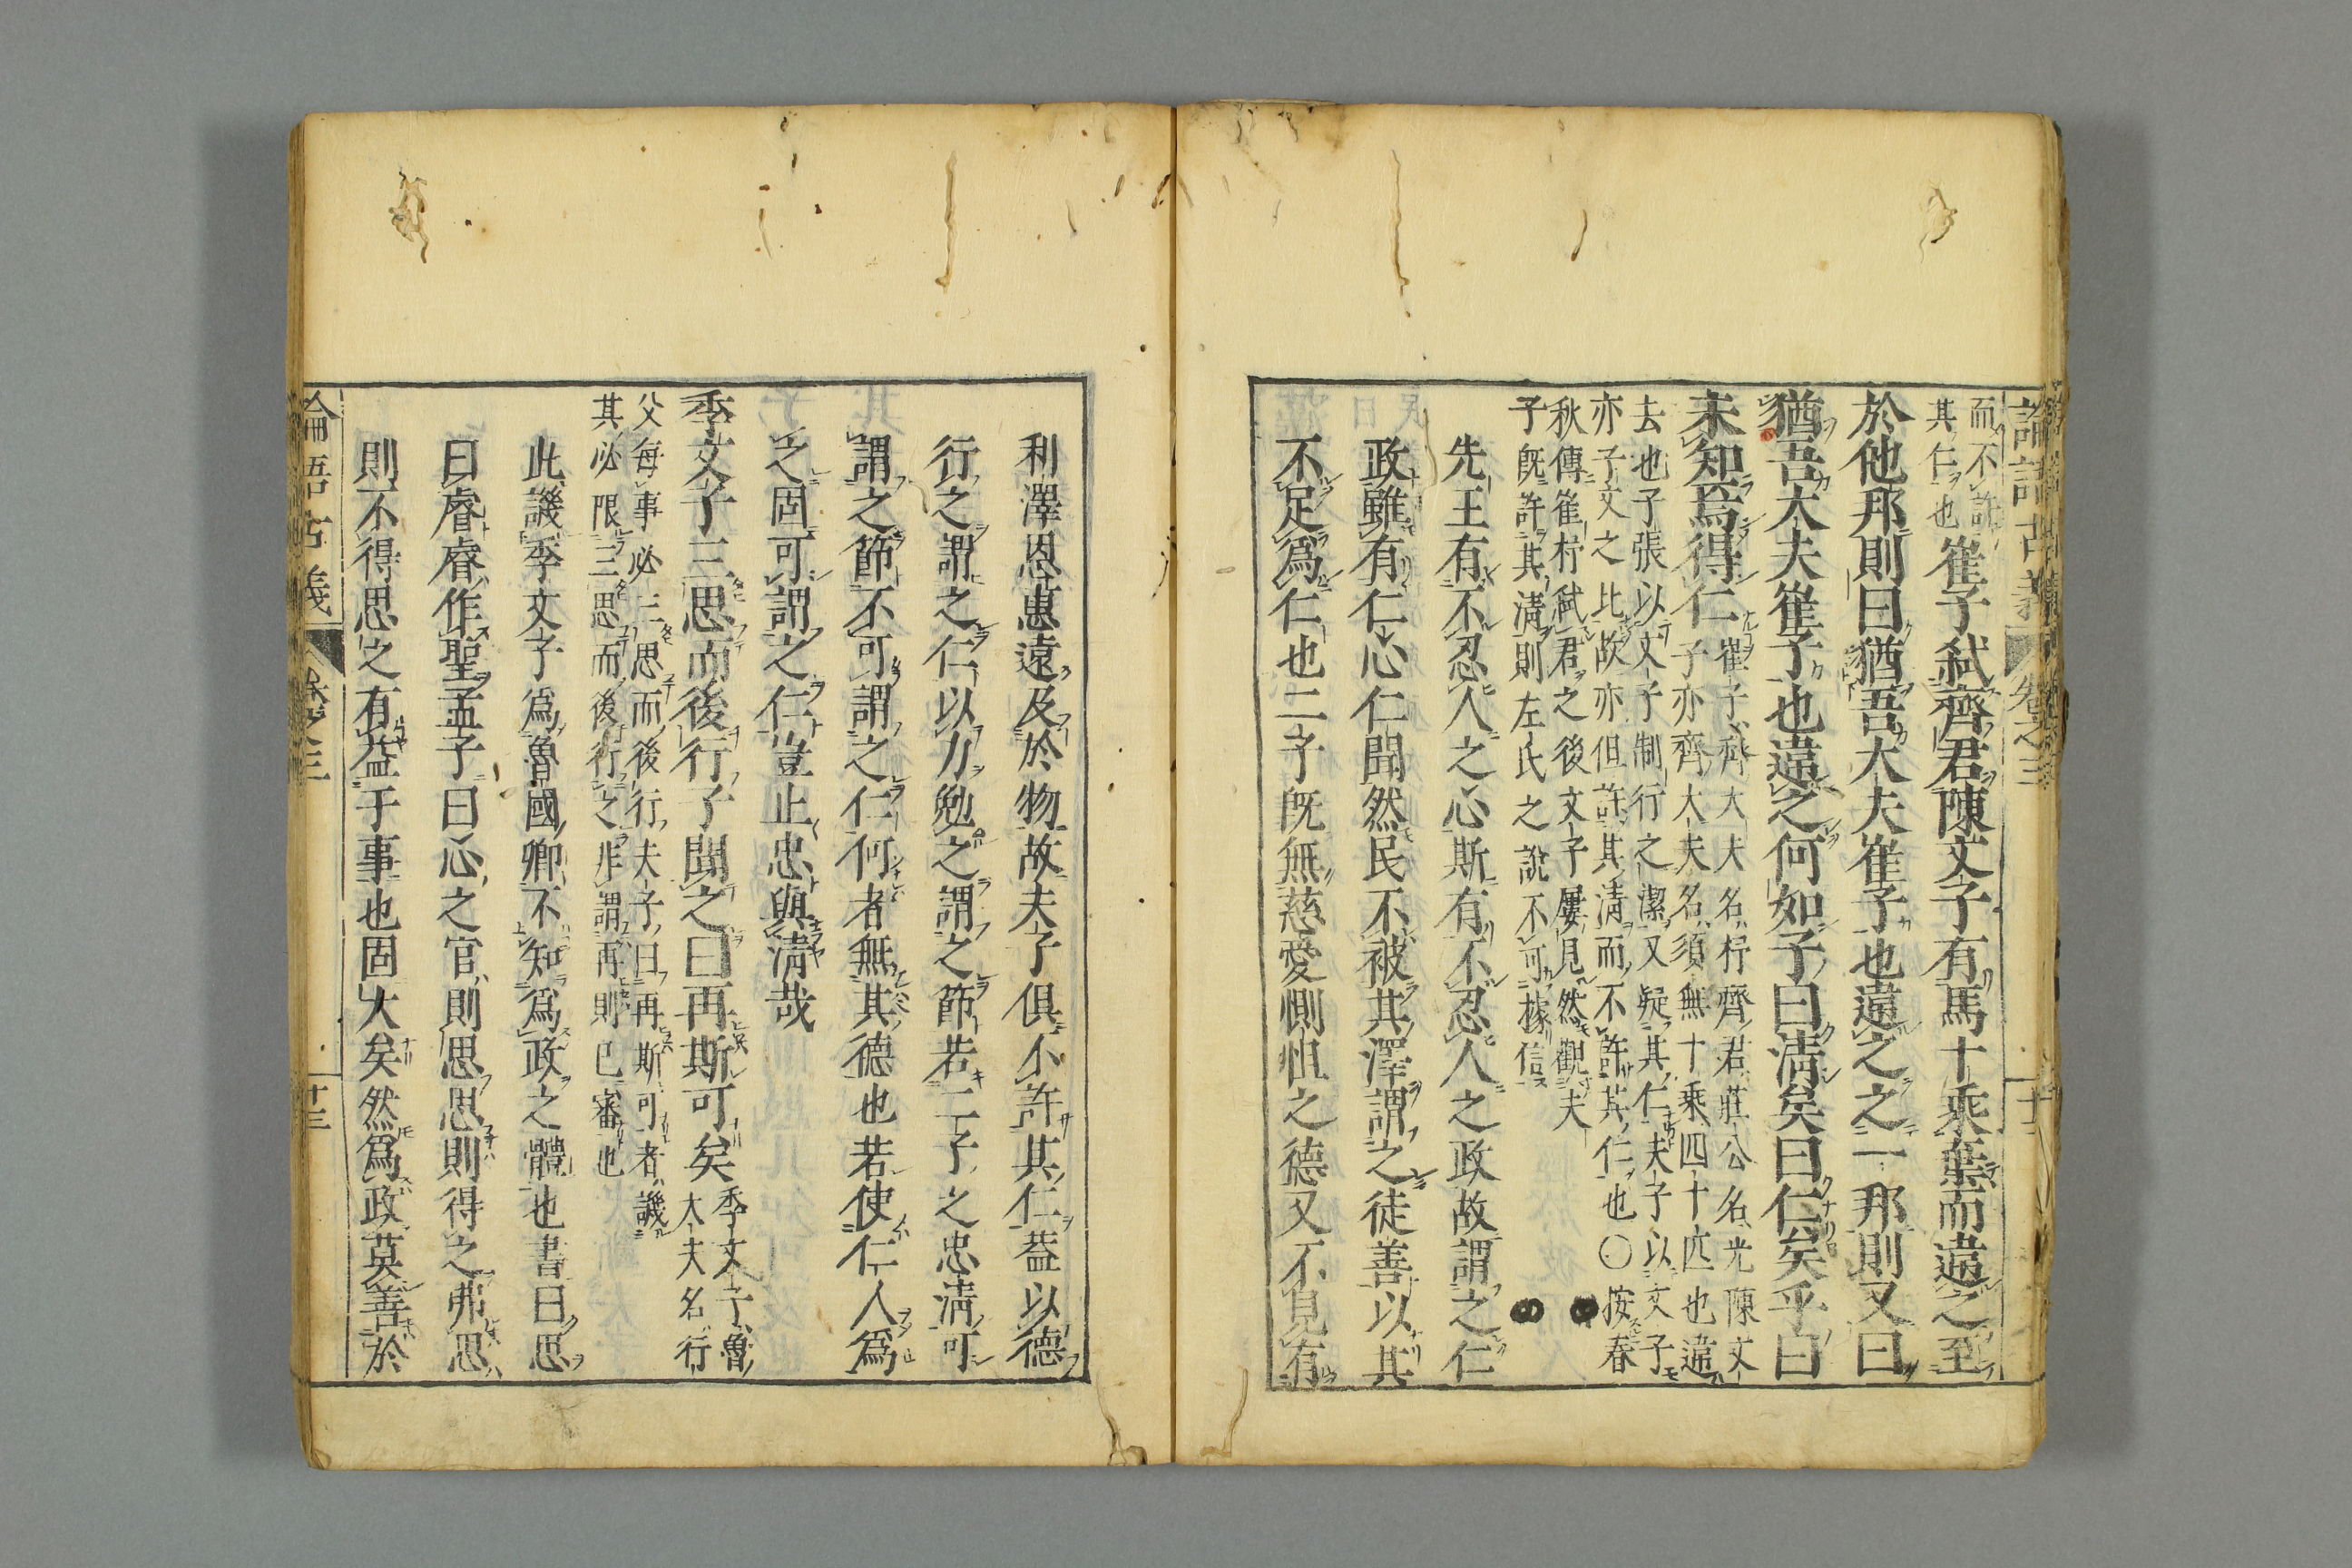 論語古義
卷之三
而不許
其仁也
崔子弑齊君陳文子有馬十乘棄而違之至
於他邦則曰猶吾大夫崔子也違之之一邦則又曰
猶吾大夫崔子也違之何如子曰清矣曰仁矣乎曰
未知焉得仁
崔子齊大夫名杼齊君莊公名光陳文
子亦齊大夫名須無十乘四十匹也違
去也子張以文子制行之潔又疑其仁夫子以文子
亦子文之比故亦但許其清而不許其仁也〇按春
秋傳崔杼弑君之後文子屢見然觀夫
子既許其清則左氏之説不可據信
先王有不忍人之心斯有不忍人之政故謂之仁
政雖有仁心仁聞然民不被其澤謂之徒善以其
不足爲仁也二子既無慈愛惻怛之德又不見有
利澤恩惠遠及於物故夫子俱不許其仁葢以德
行之謂之仁以力勉之謂之節若二子之忠清可
謂之節不可謂之仁何者無其德也若使仁人爲
之固可謂之仁豈止忠與清哉
季文子三思而後行子聞之曰再斯可矣
季文子魯
大夫名行
父每事必三思而後行夫子曰再斯可者譏
其必限三思而後行之非謂再則已審也
此譏季文子爲魯國卿不知爲政之體也書曰思
曰睿睿作聖孟子曰心之官則思思則得之弗思
則不得思之有益于事也固大矣然爲政莫善於
論語古義
卷之三
十三